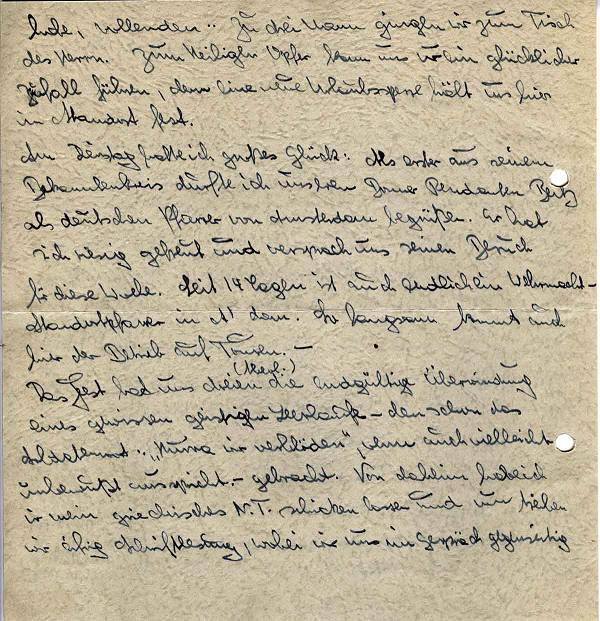 habe, vollenden :: Zu drei Mann gingen wir zum Tisch
des Herrn. Zum Heiligen Opfer kann uns nur ein glücklicher
Zufall führen, denn eine neue Urlaubssperre hält uns hier
im Standort fest.
Am Dienstag hatte ich großes Glück: Als erster aus seinem
Bekanntenkreis durfte ich unseren Bonner Rendanten
als deutschen Pfarrer von Amsterdam begrüßen. Er hat
sich riesig gefreut und versprach uns seinen Besuch
für diese Woche. Seit 14 Tagen ist auch endlich ein Wehrmacht-
Standortpfarrer in A'dam. So langsam kommt auch
hier der Betrieb auf Touren. –
Das Fest hat uns dreien (theol.) die endgültige Überwindung
eines gewissen geistigen Leerlaufs – den schon das
Soldatenwort :„Hurra wir verblöden", wenn auch vielleicht
unbewußt ausspricht. – gebracht. Von daheim habe ich
mir mein griechisches N.T. schicken lassen und nun treiben
wir eifrig Schriftlesung, wobei wir uns im Gespräch gegenseitig